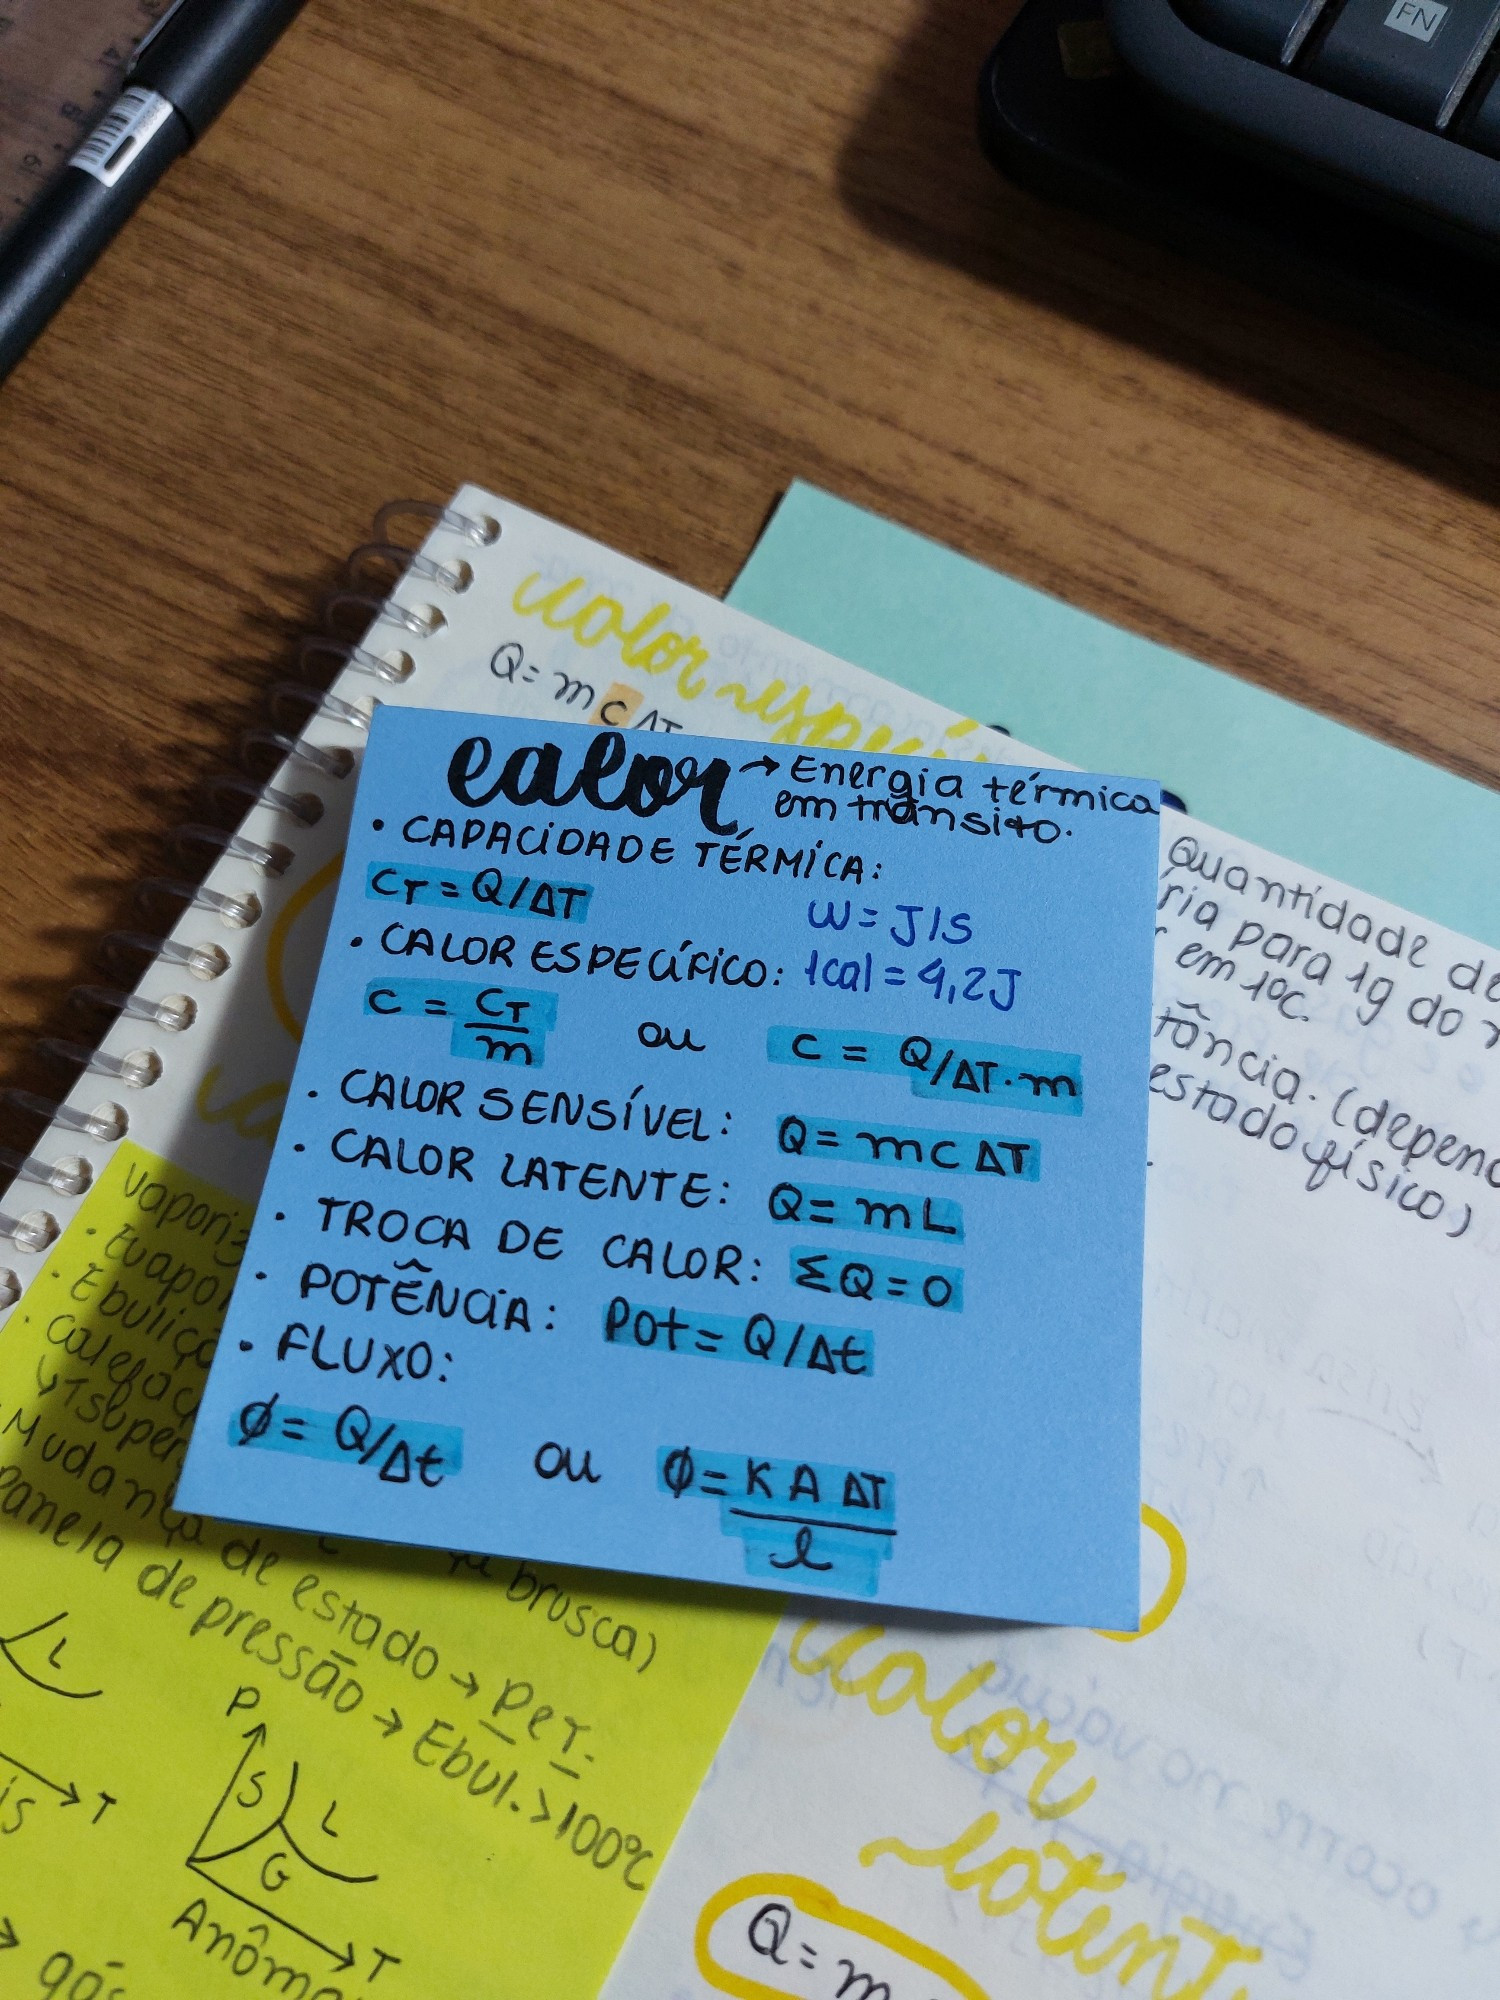 FN
calor específ
Q= m c ΔT
calor → Energia térmica
em trânsito.
• CAPACIDADE TÉRMICA:
CT = Q/ΔT
W = J/S
• CALOR ESPECÍFICO: 1cal = 4,2J
c = CT/m ou c = Q/ΔT·m
• CALOR SENSÍVEL: Q = mcΔT
• CALOR LATENTE: Q = mL
• TROCA DE CALOR: ΣQ = 0
• POTÊNCIA: Pot = Q/Δt
• FLUXO:
ø = Q/Δt ou ø = K A ΔT/l
Quantidade de
ria para 1g do
em 1°C.
tância. (depend
estado físico)
vaporiz
• Evapor
• Ebuliçã
• Calefaç
↳ Tsuper
brusca)
Mudança de estado → P e T.
panela de pressão → Ebul. > 100°C
L
T
is
P
S
L
G
T
Anôma
→ gás
calor
latent
Q = m